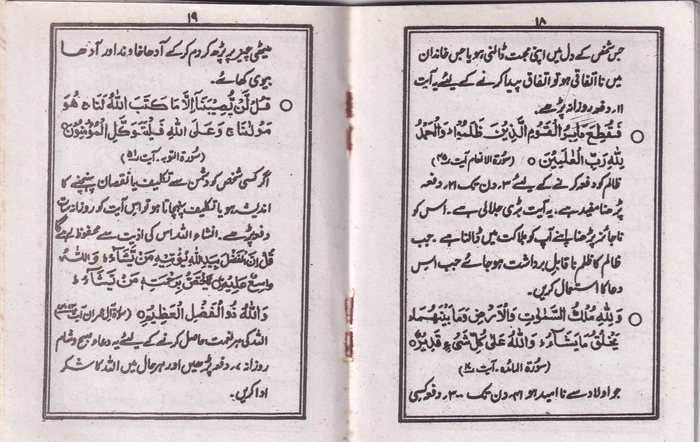 ۱۸
جس شخص کے دل میں اپنی محبت ڈالنی ہو یا جس خاندان
میں نااتفاقی ہو تو اتفاق پیدا کرنے کے لئے یہ آیت
۱۱، دفعہ روزانہ پڑھے۔
فَقُطِعَ دَابِرُ الْقَوْمِ الَّذِيْنَ ظَلَمُوْا ؕ وَالْحَمْدُ
لِلّٰهِ رَبِّ الْعٰلَمِيْنَ ○ (سورۃ الانعام آیت ۴۵)
ظالم کو دفعہ کرنے کے لئے دن تک ۲۱، دفعہ
پڑھنا مفید ہے۔ یہ آیت بڑی جلالی ہے۔ اس کو
ناجائز پڑھنا اپنے آپ کو ہلاکت میں ڈالنا ہے۔ جب
ظالم کا ظلم ناقابل برداشت ہو جائے جب اس
دعا کا استعمال کریں۔
وَلِلّٰهِ مُلْكُ السَّمٰوٰتِ وَالْاَرْضِ وَمَا بَيْنَهُمَا ؕ
يَخْلُقُ مَا يَشَآءُ ؕ وَاللّٰهُ عَلٰى كُلِّ شَیْءٍ قَدِيْرٌ
(سورۃ المائدہ۔ آیت )
جو اولاد سے نا امید ہو ۴۱، دن تک ۳۰۰، دفعہ کسی
۱۹
میٹھی چیز پر پڑھ کر دم کر کے آدھا خاوند اور آدھا
بیوی کھائے۔
قُلْ لَّنْ يُّصِيْبَنَآ اِلَّا مَا كَتَبَ اللّٰهُ لَنَا ۚ هُوَ
مَوْلٰنَا ۚ وَعَلَى اللّٰهِ فَلْيَتَوَكَّلِ الْمُؤْمِنُوْنَ
(سورۃ التوبہ۔ آیت ۵۱)
اگر کسی شخص کو دشمن سے تکلیف یا نقصان پہنچنے کا
اندیشہ ہو یا تکلیف پہنچاتا ہو تو اس آیت کو روزانہ سات
دفعہ پڑھے۔ انشاء اللہ اس کی اذیت سے محفوظ رہے گا
قُلْ اِنَّ الْفَضْلَ بِيَدِ اللّٰهِ يُؤْتِيْهِ مَنْ يَّشَآءُ ؕ وَاللّٰهُ
وَاسِعٌ عَلِيْمٌ يَّخْتَصُّ بِرَحْمَتِهٖ مَنْ يَّشَآءُ ؕ
وَاللّٰهُ ذُو الْفَضْلِ الْعَظِيْمِ ○ (سورۃ آل عمران آیت )
اللہ کی ہر نعمت حاصل کرنے کے لئے یہ دعاء صبح و شام
روزانہ ۷، دفعہ پڑھیں اور ہر حال میں اللہ کا شکر
ادا کریں۔